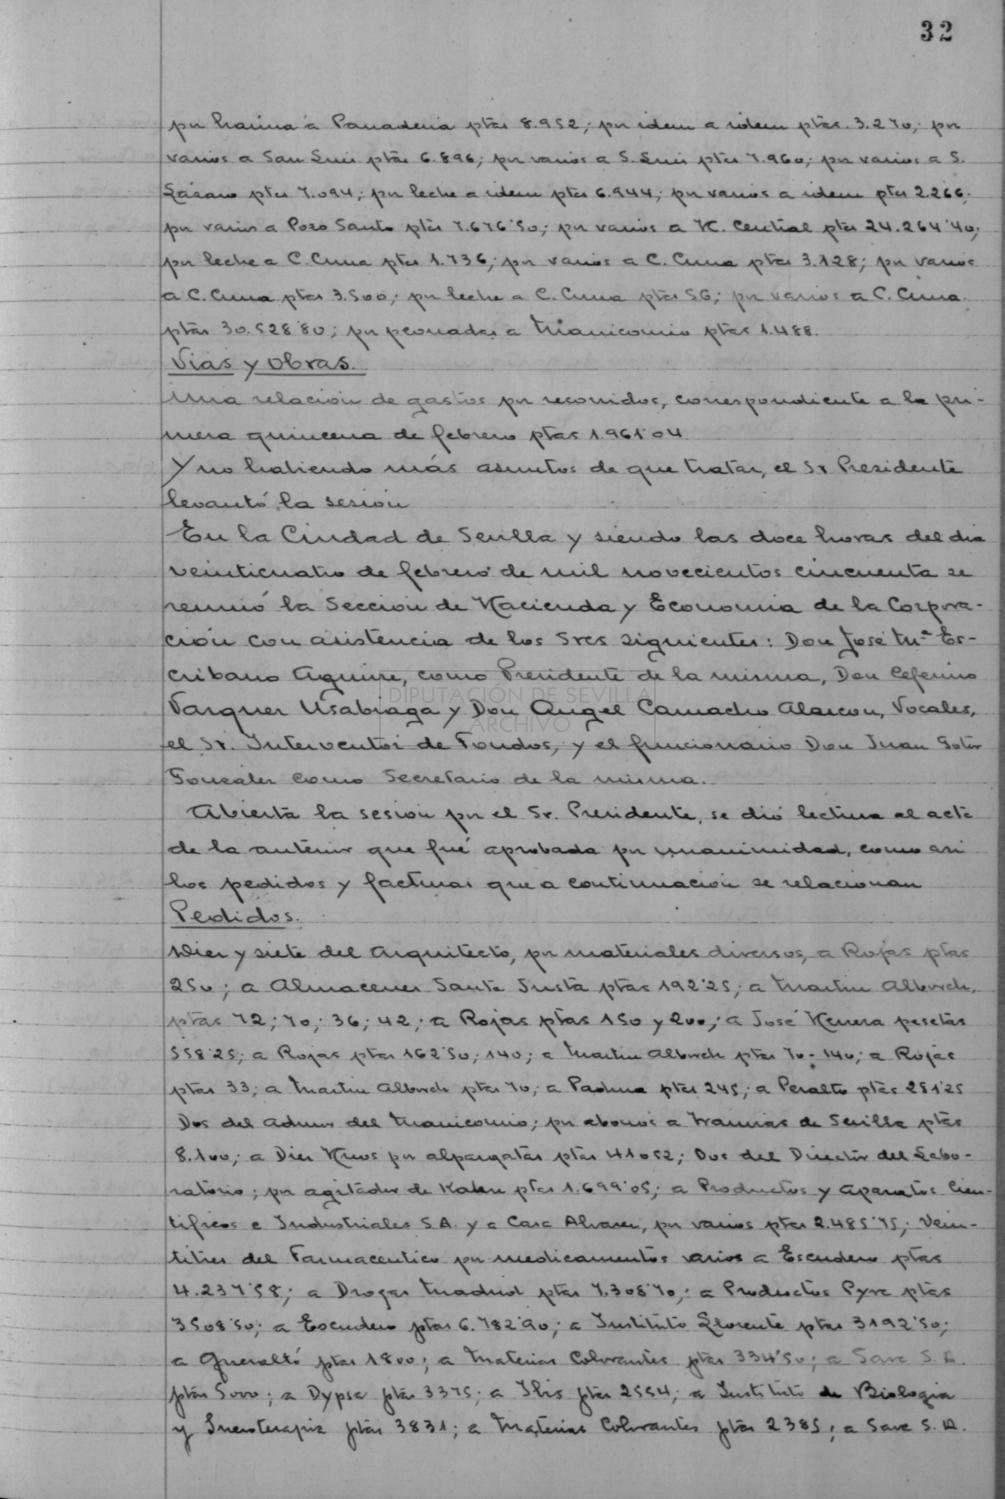 32
por harina a Panaderia ptas 8.952; por idem a idem ptas. 3.270; por
varios a San Luis ptas 6.896; por varios a S. Luis ptas 7.960; por varios a S.
Lázaro ptas 7.094; por leche a idem ptas 6.944; por varios a idem ptas 2.266;
por varios a Pozo Santo ptas 7.676'50; por varios a H. Central ptas 24.264'40;
por leche a C. Cuna ptas 1.736; por varios a C. Cuna ptas 3.128; por varios
a C. Cuna ptas 3.500; por leche a C. Cuna ptas 56; por varios a C. Cuna.
ptas 30.528'80; por peonadas a Manicomio ptas 1.488.
Vias y Obras.
Una relación de gastos por recorridos, correspondiente a la pri-
mera quincena de febrero ptas 1.961'04
Y no habiendo más asuntos de que tratar, el Sr Presidente
levantó la sesión
En la Ciudad de Sevilla y siendo las doce horas del dia
veinticuatro de febrero de mil novecientos cincuenta se
reunió la Sección de Hacienda y Economia de la Corpora-
ción con asistencia de los Sres siguientes: Don José Mª Es-
cribano Aguirre, como Presidente de la misma, Don Ceferino
Vazquez Usabiaga y Don Angel Camacho Alarcon, Vocales,
el Sr. Interventor de Fondos, y el funcionario Don Juan Soter
Gonzalez como Secretario de la misma.
DIPUTACIÓN DE SEVILLA
ARCHIVO
Abierta la sesión por el Sr. Presidente, se dió lectura al acta
de la anterior que fué aprobada por unanimidad, como asi
los pedidos y facturas que a continuación se relacionan
Pedidos.
Diez y siete del Arquitecto, por materiales diversos, a Rojas ptas
250; a Almacenes Santa Justa ptas 192'25; a Martin Alborch,
ptas 72; 70; 36; 42; a Rojas ptas 150 y 200; a José Herrera pesetas
558'25; a Rojas ptas 162'50; 140; a Martin Alborch ptas 70-140; a Rojas
ptas 33; a Martin Alborch ptas 70; a Padura ptas 245; a Peralto ptas 251'25
Dos del Admor del Manicomio; por abonos a tranvias de Sevilla ptas
8.100; a Diez Hnos por alpargatas ptas 41052; Dos del Director del Labo-
ratorio; por agitador de Kahn ptas 1.699'05; a Productos y Aparatos Cien-
tificos e Industriales S.A. y a Casa Alvarez, por varios ptas 2.485'75; Vein-
titres del Farmacéutico por medicamentos varios a Escudero ptas
4.237'58; a Drogas Madrid ptas 7.308'70; a Productos Pyre ptas
3508'50; a Escudero ptas 6.782'90; a Instituto Llorente ptas 3192'50;
a Queraltó ptas 1800; a Materias Colorantes ptas 334'50; a Save S.A.
ptas 5000; a Dypsa ptas 3375; a Ibis ptas 2554; a Instituto de Biologia
y Sueroterapia ptas 3831; a Materias Colorantes ptas 2385; a Save S.A.